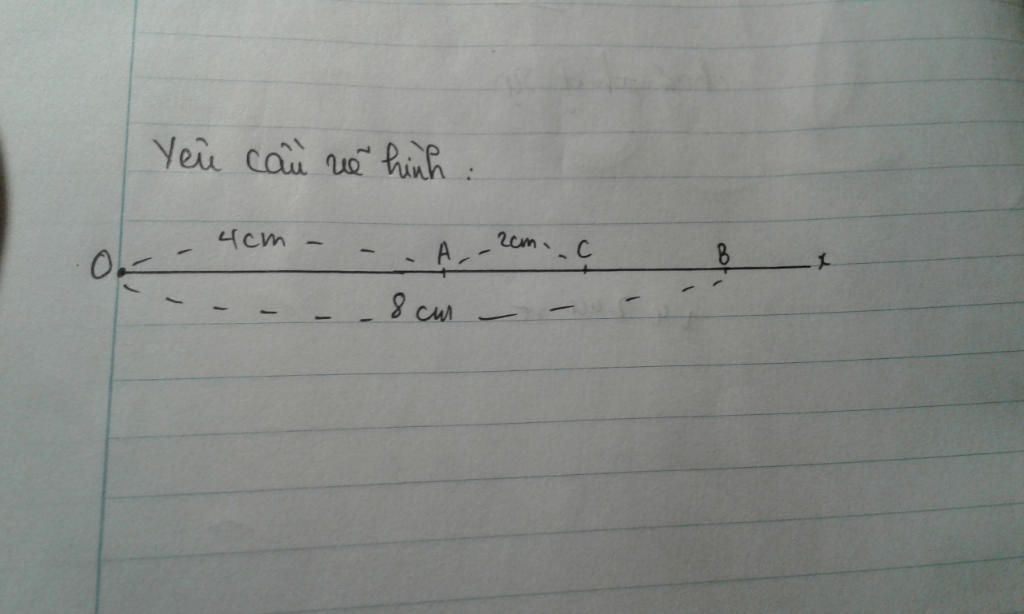 Yêu cầu vẽ hình :
4cm A 2cm C B
O x
8 cm